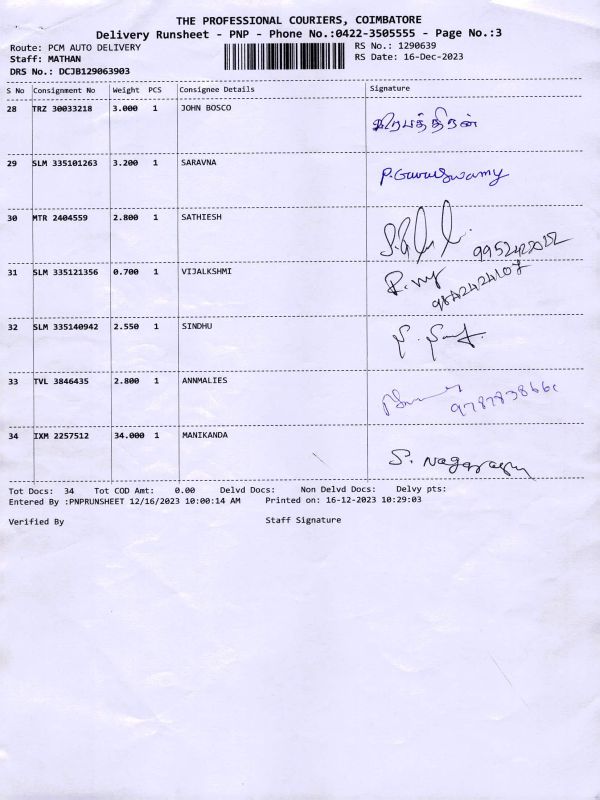 THE PROFESSIONAL COURIERS, COIMBATORE
Delivery Runsheet - PNP - Phone No.:0422-3505555 - Page No.:3
Route: PCM AUTO DELIVERY RS No.: 1290639
Staff: MATHAN RS Date: 16-Dec-2023
DRS No.: DCJB129063903
S No Consignment No Weight PCS Consignee Details Signature
28 TRZ 30033218 3.000 1 JOHN BOSCO
29 SLM 335101263 3.200 1 SARAVNA
30 MTR 2404559 2.800 1 SATHIESH
31 SLM 335121356 0.700 1 VIJALKSHMI
9842424107
32 SLM 335140942 2.550 1 SINDHU
33 TVL 3846435 2.800 1 ANNMALIES
34 IXM 2257512 34.000 1 MANIKANDA S. Nagarajan
Tot Docs: 34 Tot COD Amt: 0.00 Delvd Docs: Non Delvd Docs: Delvy pts:
Entered By :PNPRUNSHEET 12/16/2023 10:00:14 AM Printed on: 16-12-2023 10:29:03
Verified By Staff Signature